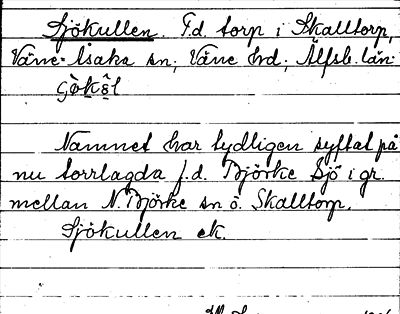 Sjökullen. F.d. torp i Skalltorp,
Väne-Åsaka sn; Väne hd; Älfsb. län.
Namnet har tydligen syftat på
nu torrlagda f.d. Björke Sjö i gr.
mellan N. Björke sn o. Skalltorp.
Sjökullen ek.